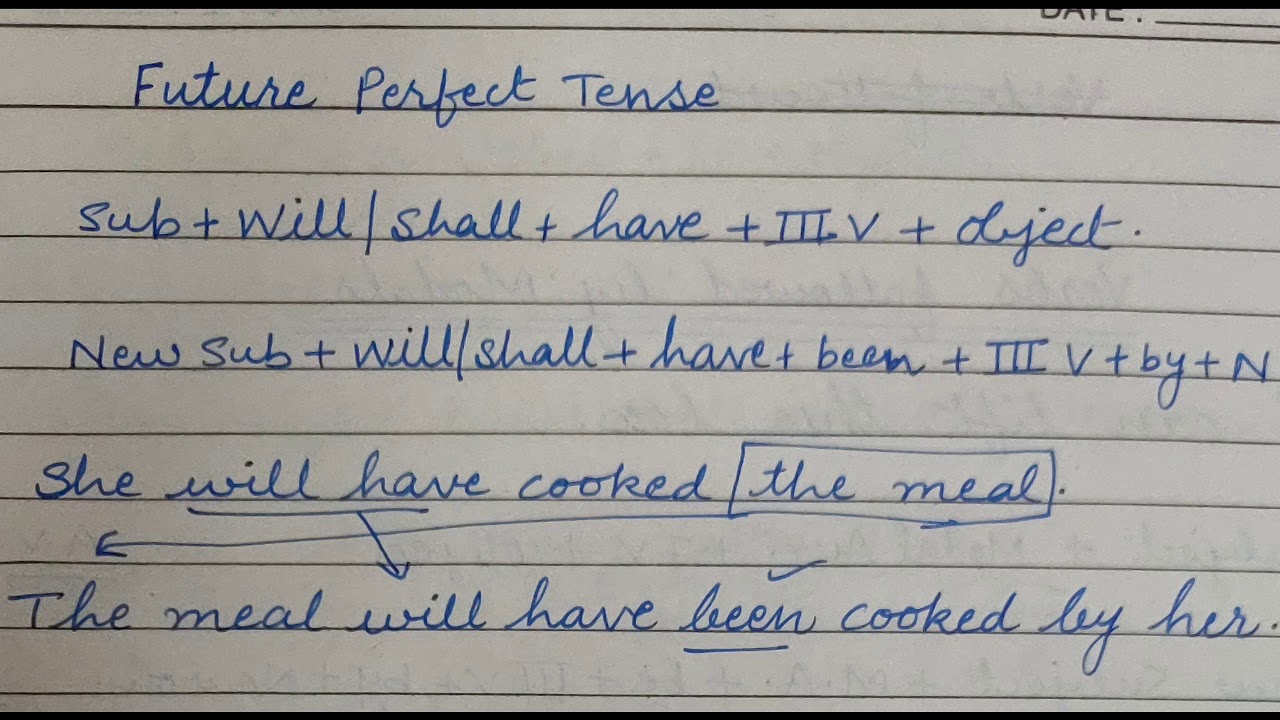 DATE:
Future Perfect Tense
Sub + Will / Shall + have + III V + object.
New Sub + will/shall + have + been + III V + by + N
She will have cooked the meal.
The meal will have been cooked by her.